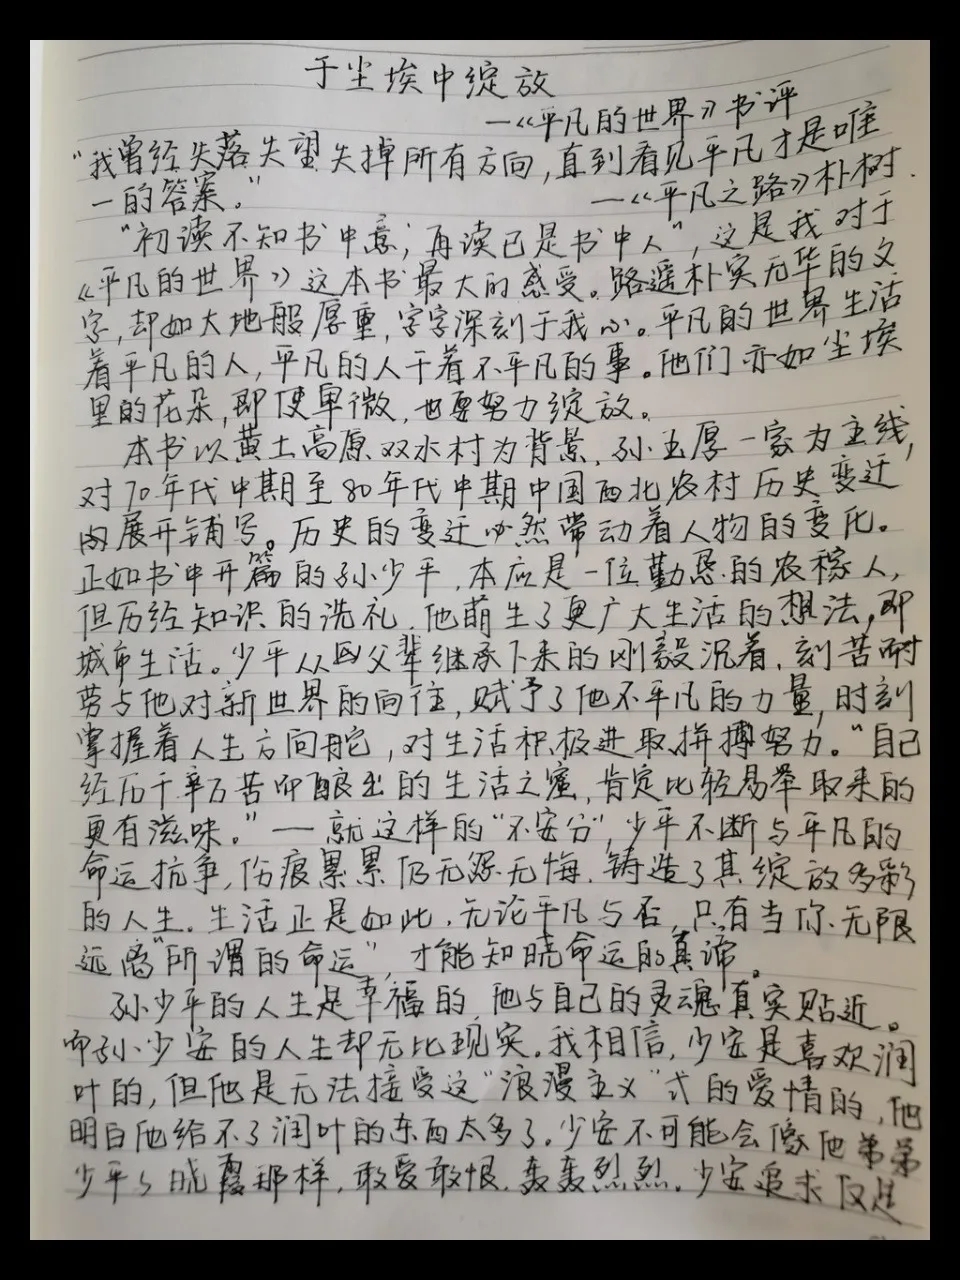 于尘埃中绽放
—《平凡的世界》书评
“我曾经失落失望失掉所有方向,直到看见平凡才是唯
一的答案。”
—《平凡之路》朴树.
“初读不知书中意;再读已是书中人”,这是我对于
《平凡的世界》这本书最大的感受。路遥朴实无华的文
字,却如大地般厚重,字字深刻于我心。平凡的世界生活
着平凡的人,平凡的人干着不平凡的事。他们亦如尘埃
里的花朵,即使卑微,也要努力绽放。
本书以黄土高原双水村为背景,孙玉厚一家为主线,
对70年代中期至80年代中期中国西北农村历史变迁
展开铺写。历史的变迁必然带动着人物的变化。
正如书中开篇的孙少平,本应是一位勤恳的农稼人,
但历经知识的洗礼,他萌生了更广大生活的想法,即
城市生活。少平从父辈继承下来的刚毅沉着,刻苦耐
劳与他对新世界的向往,赋予了他不平凡的力量,时刻
掌握着人生方向舵,对生活积极进取,拼搏努力。“自己
经历千辛万苦而酿出的生活之蜜,肯定比轻易举取来的
更有滋味。”—就这样的“不安分”,少平不断与平凡的
命运抗争,伤痕累累仍无怨无悔,铸造了其绽放多彩
的人生。生活正是如此,无论平凡与否,只有当你无限
远离“所谓的命运”,才能知晓命运的真谛。
孙少平的人生是幸福的,他与自己的灵魂真实贴近。
而孙少安的人生却无比现实。我相信,少安是喜欢润
叶的,但他是无法接受这“浪漫主义”式的爱情的,他
明白他给不了润叶的东西太多了。少安不可能会像他弟弟
少平与晓霞那样,敢爱敢恨,轰轰烈烈。少安追求仅是